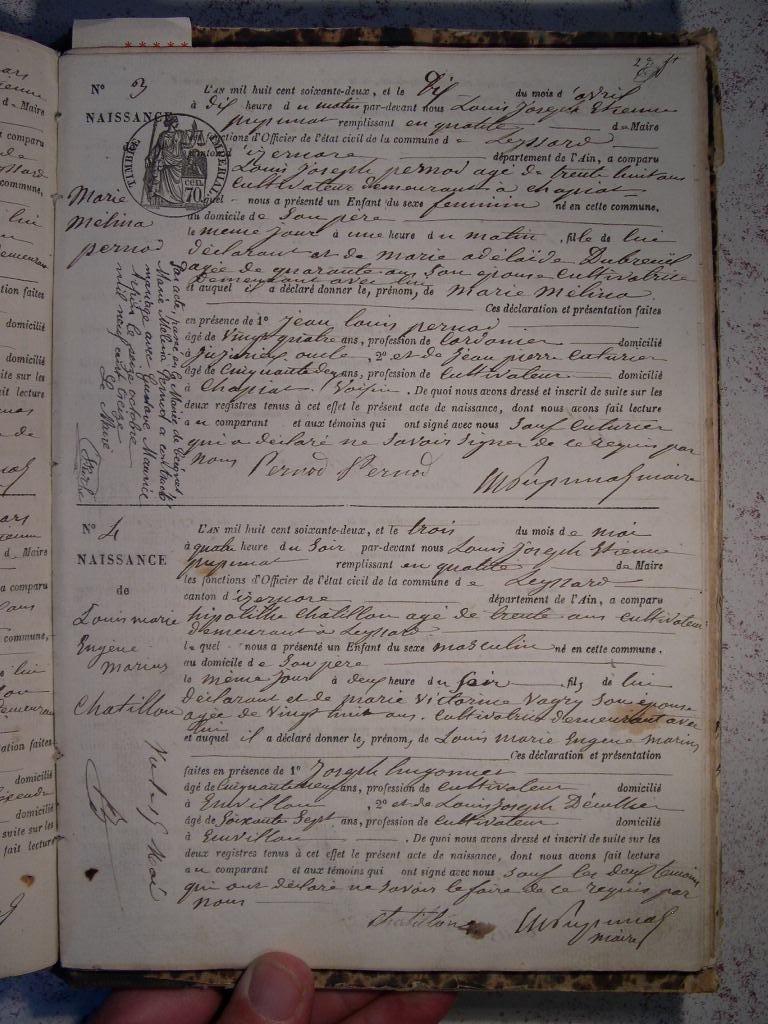 N° 3
NAISSANCE
TIMBRE IMPÉRIAL
70 cen.
Marie
Mélina
pernod
L'AN mil huit cent soixante-deux, et le Dix du mois d'avril
à dix heure du matin par-devant nous Louis Joseph Etienne
pupunat remplissant en qualité de Maire
les fonctions d'Officier de l'état civil de la commune de Leyssard
canton d'izernore département de l'Ain, a comparu
Louis Joseph pernod agé de trente huit ans
cultivateur demeurant a chapiat
lequel nous a présenté un Enfant du sexe feminin né en cette commune,
au domicile de Son père
le même jour à une heure du matin, fille de lui
déclarant et de marie adélaïde Dubreuil
agée de quarante ans Son épouse cultivatrice
Demeurant avec lui
et auquel il a déclaré donner le, prénom, de Marie Mélina
Ces déclaration et présentation faites
en présence de 1° Jean Louis pernod
âgé de Vingt quatre ans, profession de Cordonier domicilié
à, 2° et de Jean pierre Cuturier
âgé de Cinquante deux ans, profession de Cultivateur domicilié
à Chapiat Voisin. De quoi nous avons dressé et inscrit de suite sur les
deux registres tenus à cet effet le présent acte de naissance, dont nous avons fait lecture
au comparant et aux témoins qui ont signé avec nous Sauf Cuturier
qui a déclaré ne Savoir Signer de ce requis par
nous Pernod Pernod Pupunat maire
Par acte, passé en la Mairie de
Marie Mélina Pernod a contracté
mariage avec Gustave Maurice
le seize octobre
mil neuf cent treize
Le Maire
N° 4
NAISSANCE
de
Louis marie
Eugène
Marius
Chatillon
Vu le 5 Mai
L'AN mil huit cent soixante-deux, et le trois du mois de mai
à quatre heure du Soir par-devant nous Louis Joseph Etienne
pupunat remplissant en qualité de Maire
les fonctions d'Officier de l'état civil de la commune de Leyssard
canton d'izernore département de l'Ain, a comparu
hipolithe Chatillon agé de trente ans cultivateur
demeurant a Leyssard
lequel nous a présenté un Enfant du sexe masculin né en cette commune,
au domicile de Son père
le même jour à deux heure du Soir, fils de lui
déclarant et de marie Victorine Vagry Son épouse
agée de Vingt huit ans. Cultivatrice demeurant avec
lui
et auquel il a déclaré donner le, prénom, de Louis marie Eugene Marius
Ces déclaration et présentation
faites en présence de 1° Joseph hugonnet
âgé de Cinquante neuf ans, profession de Cultivateur domicilié
à Emvillon, 2° et de Louis Joseph
âgé de Soixante Sept ans, profession de Cultivateur domicilié
à Emvillon. De quoi nous avons dressé et inscrit de suite sur les
deux registres tenus à cet effet le présent acte de naissance, dont nous avons fait lecture
au comparant et aux témoins qui ont signé avec nous Sauf les deux temoins
qui ont déclaré ne Savoir le faire de ce requis par
nous
Chatillon Pupunat
maire